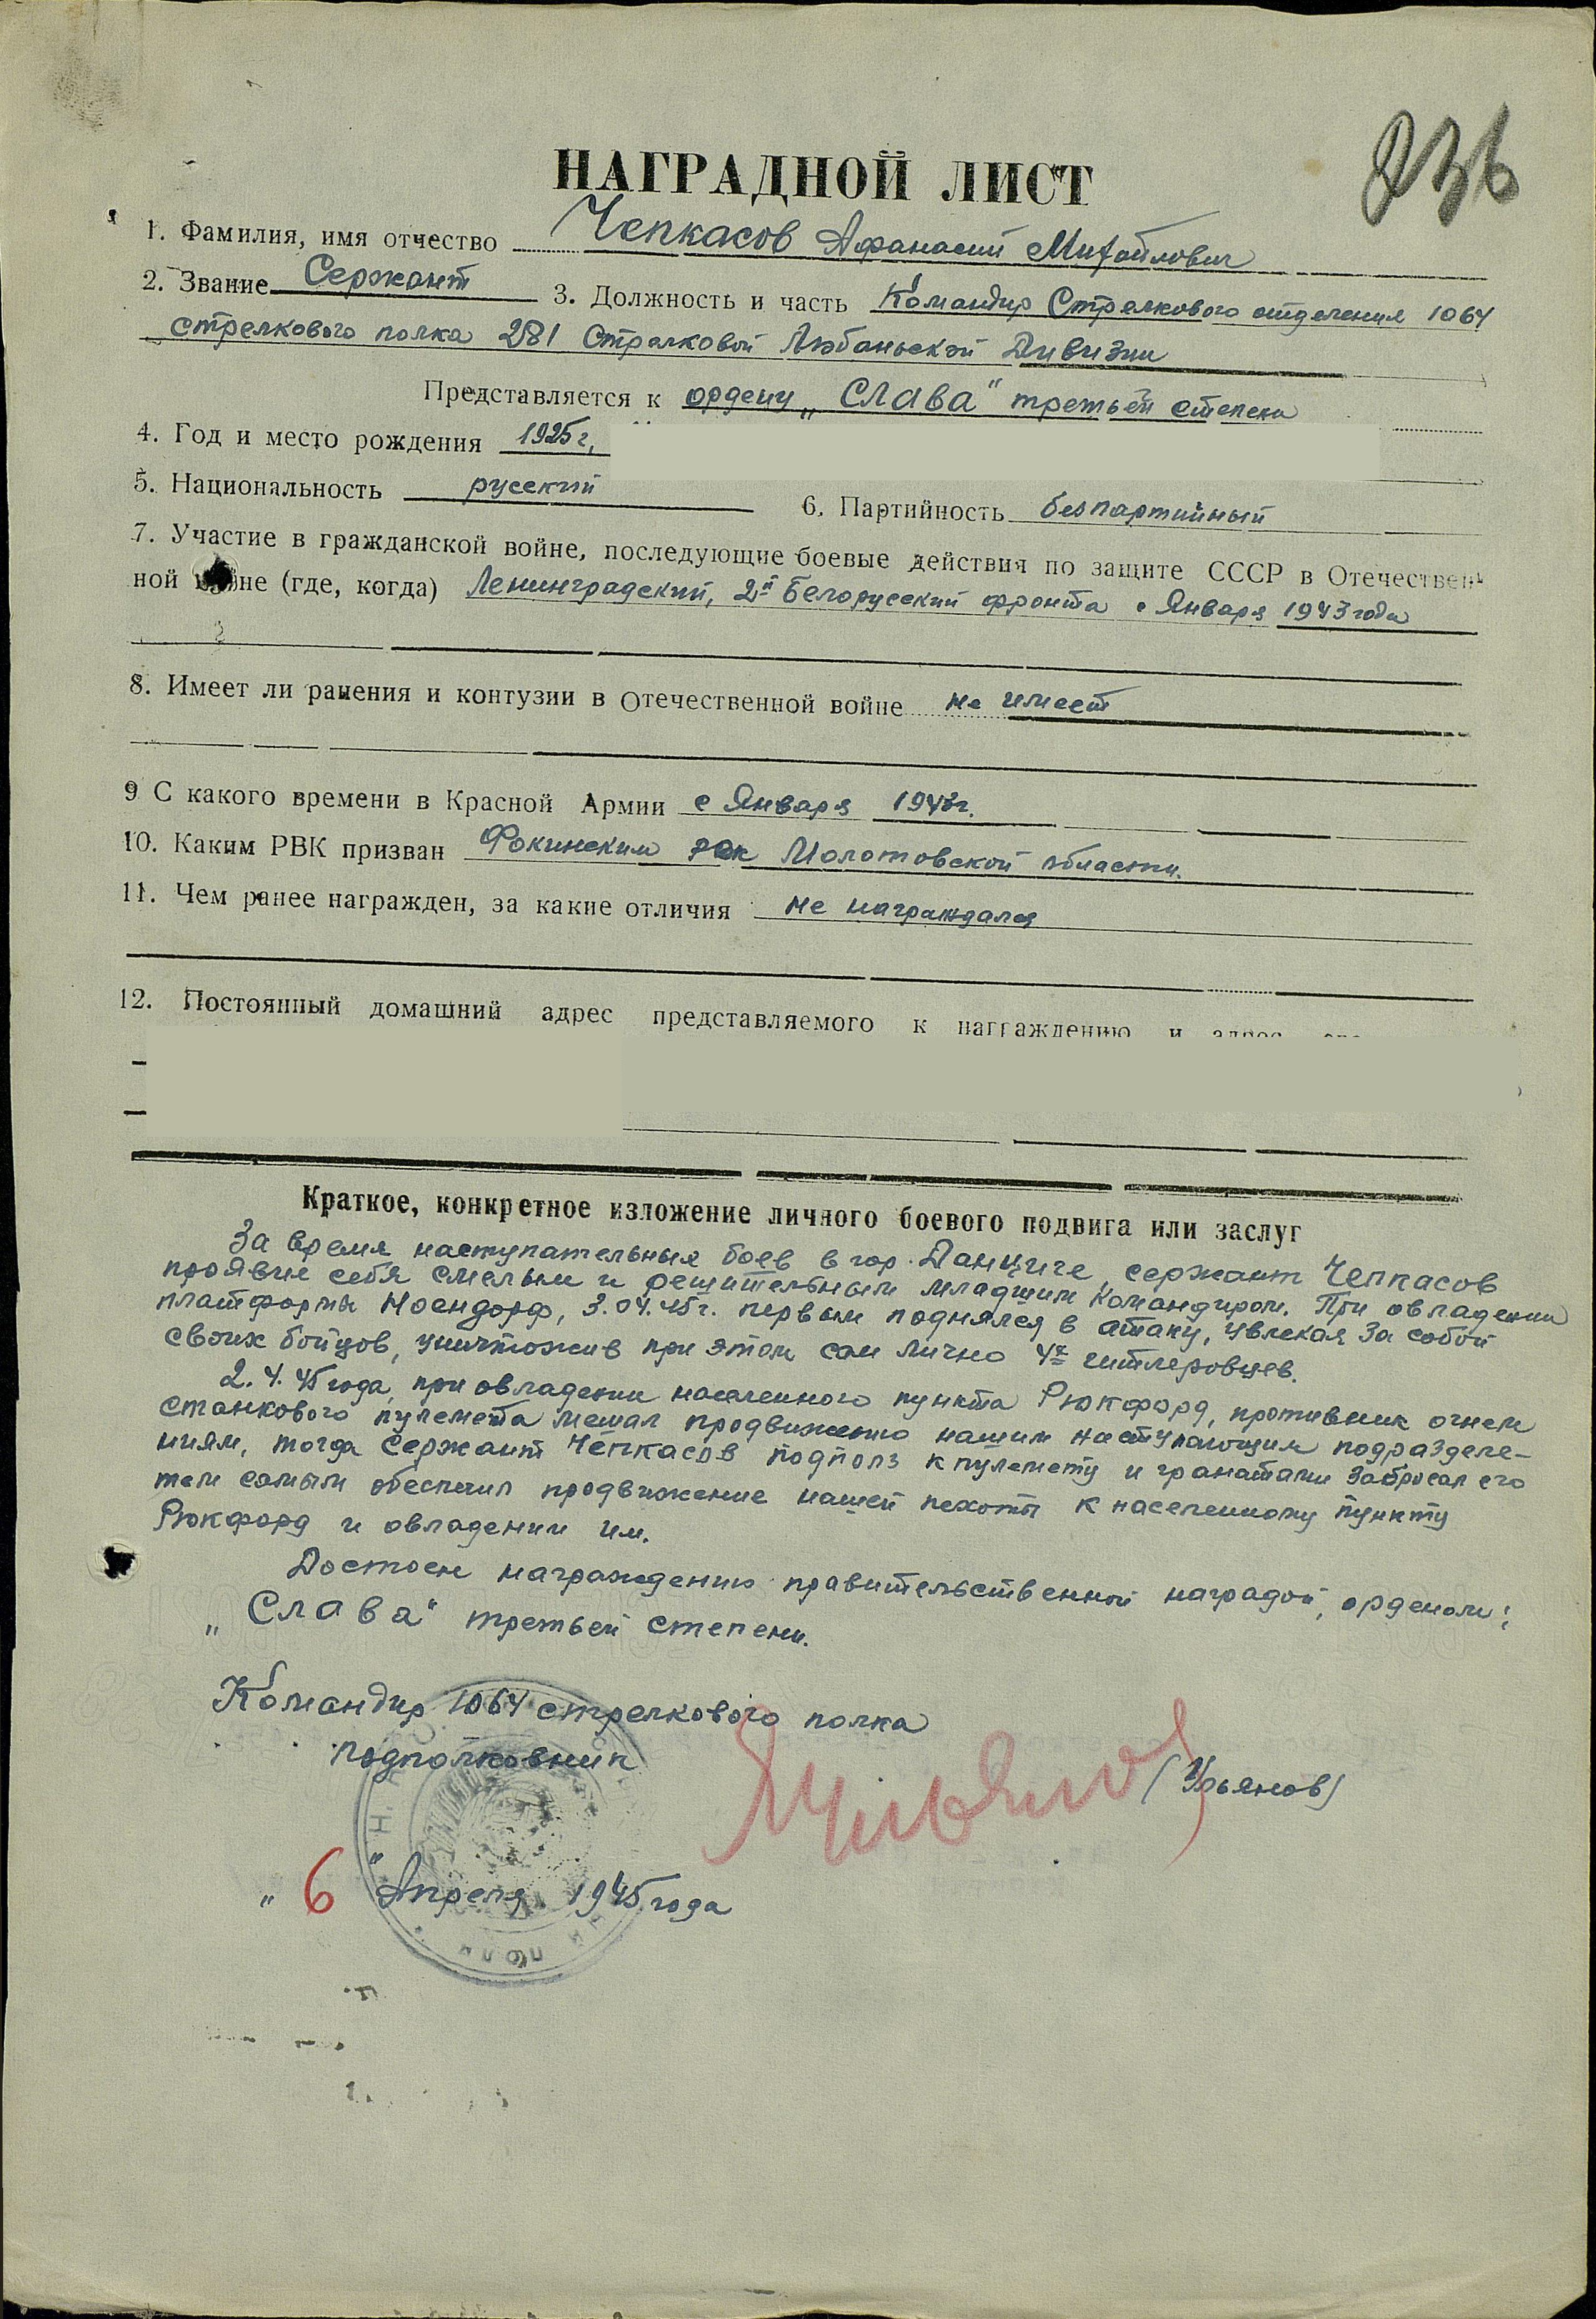 236
НАГРАДНОЙ ЛИСТ
1. Фамилия, имя отчество Чепкасов Афанасий Михайлович
2. Звание Сержант 3. Должность и часть Командир Стрелкового отделения 1064
стрелкового полка 281 Стрелковой Любаньской Дивизии
Представляется к ордену „Слава" третьей степени
4. Год и место рождения 1925г,
5. Национальность русский 6. Партийность безпартийный
7. Участие в гражданской войне, последующие боевые действия по защите СССР в Отечествен-
ной войне (где, когда) Ленинградский, 2й Белорусский фронта с Января 1943 года
8. Имеет ли ранения и контузии в Отечественной войне не имеет
9 С какого времени в Красной Армии с Января 1943г.
10. Каким РВК призван Фокинским рвк Молотовской области.
11. Чем ранее награжден, за какие отличия не награждался
12. Постоянный домашний адрес представляемого к награждению и адрес его
Краткое, конкретное изложение личного боевого подвига или заслуг
За время наступательных боев в гор. Данциге, сержант Чепкасов
проявил себя смелым и решительным младшим командиром. При овладении
платформы Ноендорф, 3.04.45г. первым поднялся в атаку, увлекая за собой
своих бойцов, уничтожив при этом сам лично 4х гитлеровцев.
2.4.45 года, при овладении населенного пункта Рюкфорд, противник огнем
станкового пулемета мешал продвижению нашим наступающим подразделе-
ниям, тогда сержант Чепкасов подполз к пулемету и гранатами забросал его
тем самым обеспечил продвижение нашей пехоты к населенному пункту
Рюкфорд и овладении им.
Достоен награждению правительственной наградой, орденом:
„Слава" третьей степени.
Командир 1064 стрелкового полка
подполковник (Ульянов)
„6" Апреля 1945 года